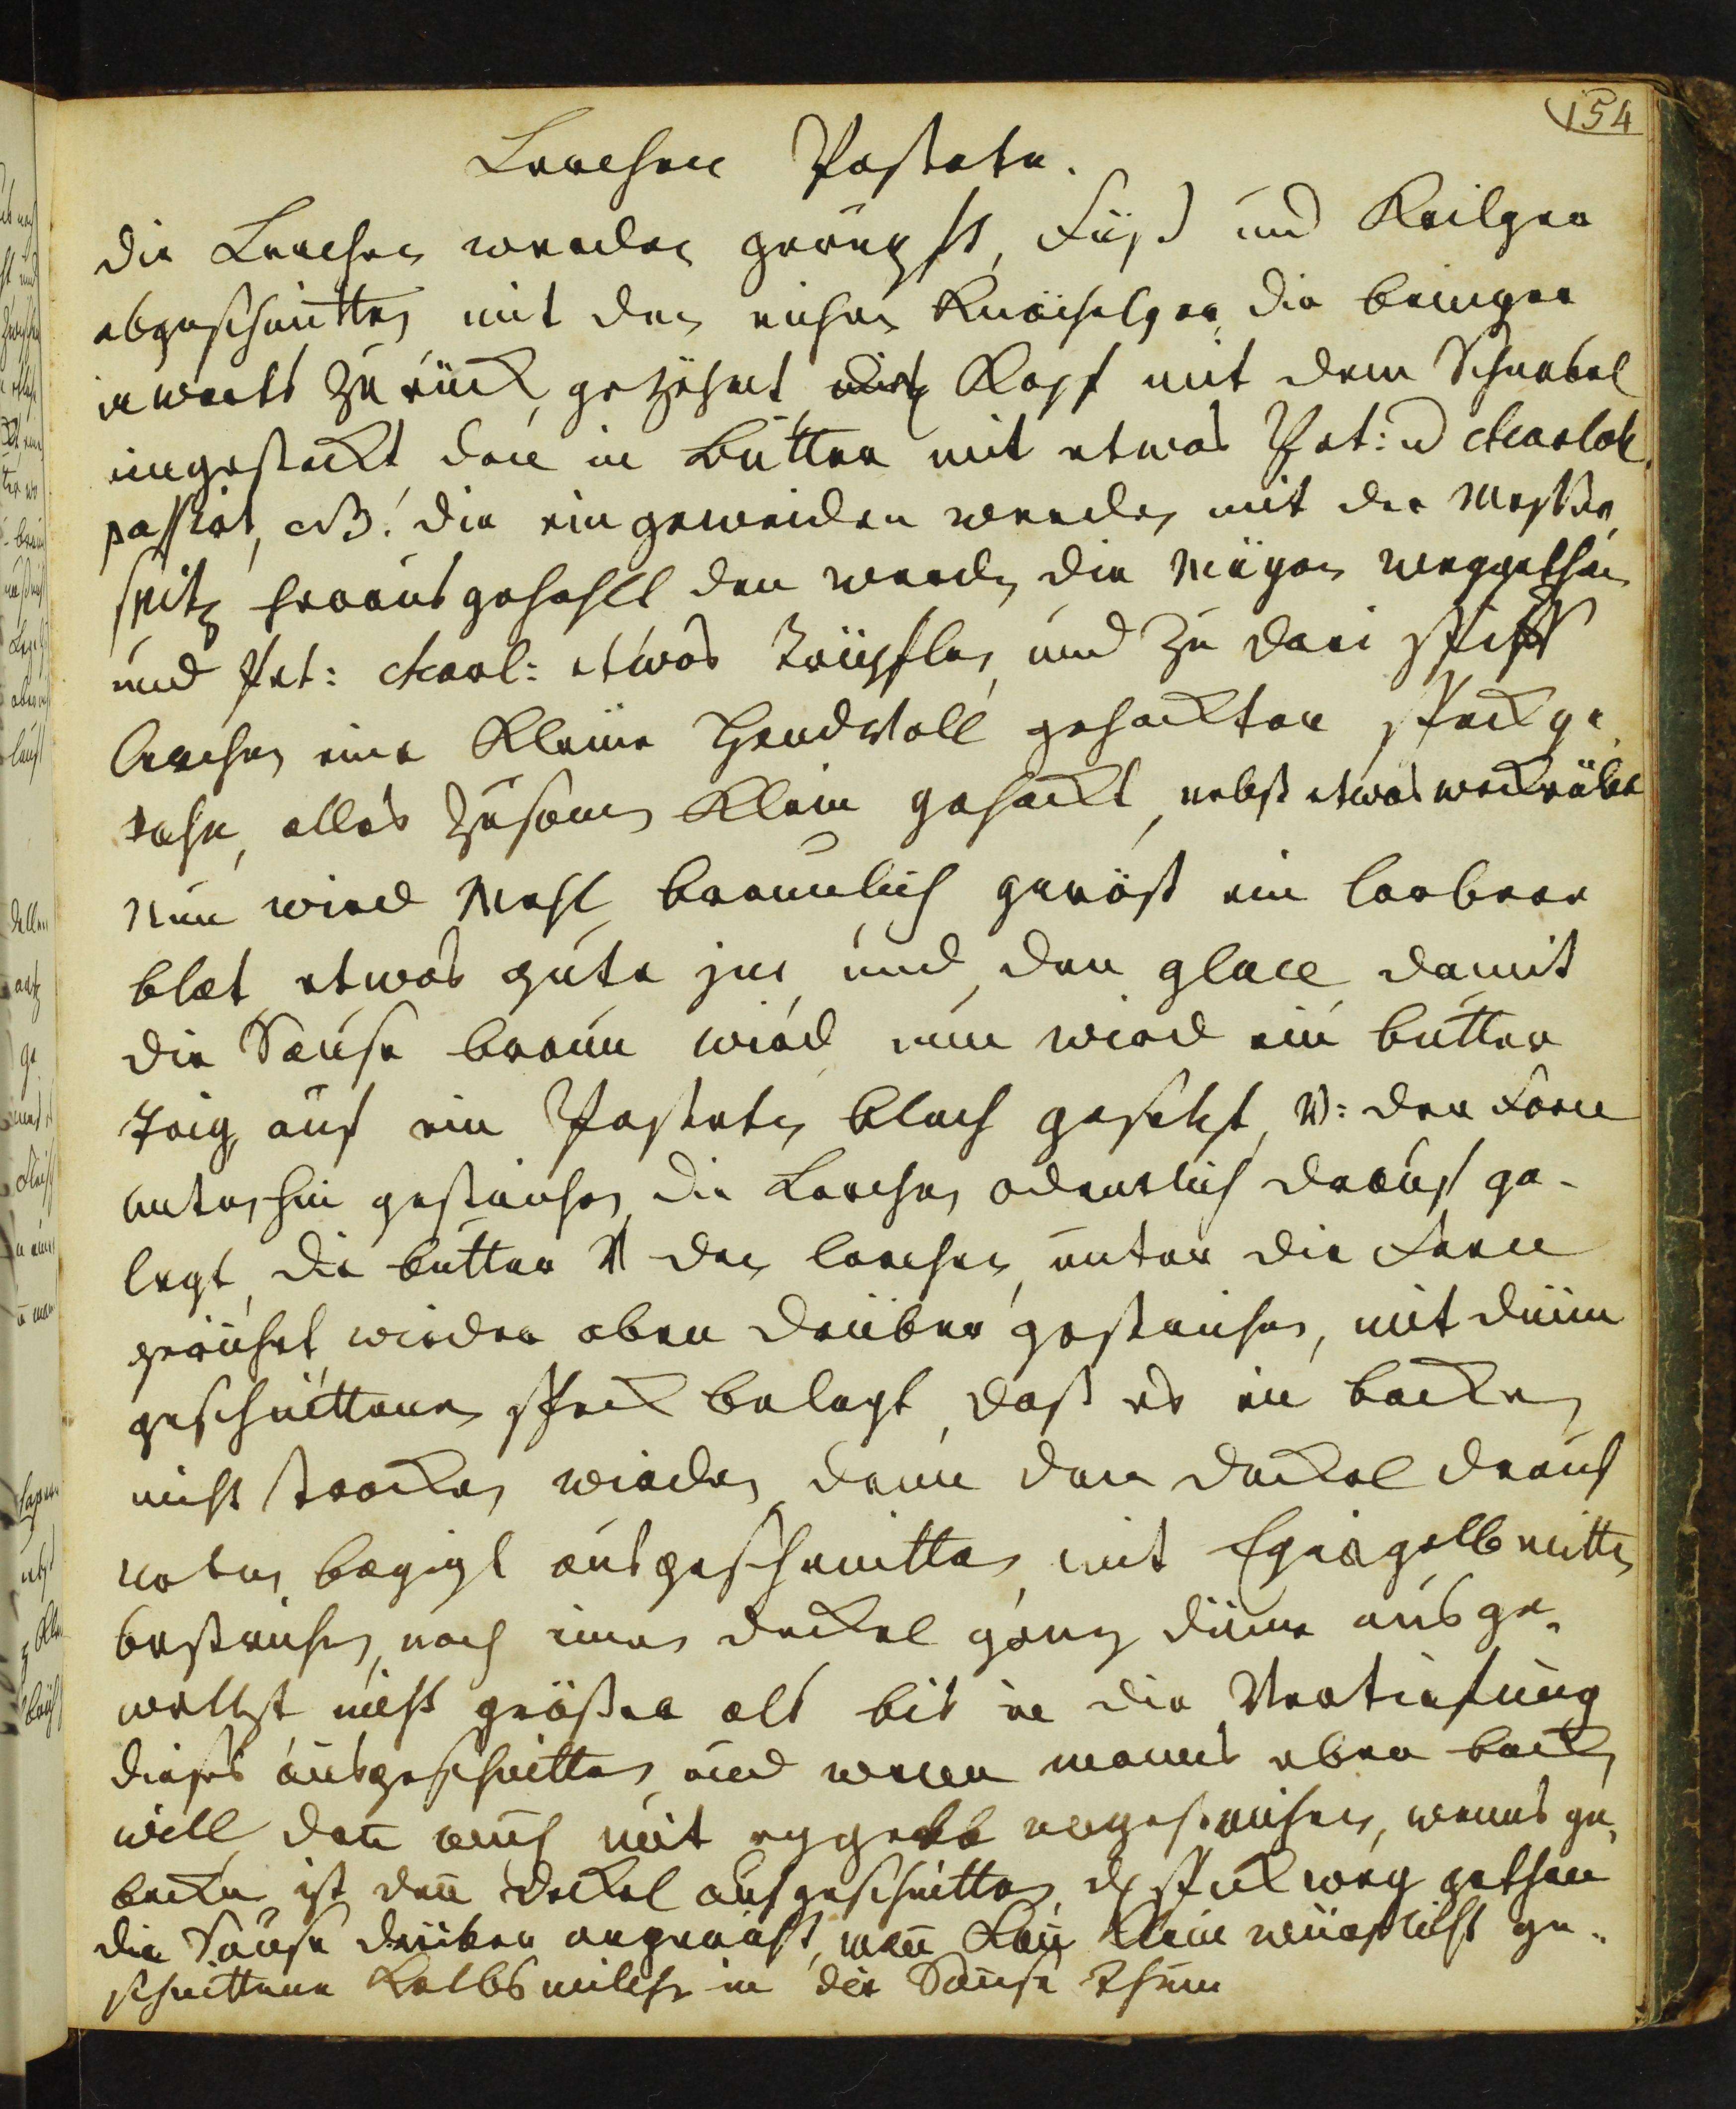 154
Lerchen Pastete.
die Lerchen werden gerupft, Füß und Keilger
abgeschnitten mit den eichen Knöchelger die beinger
inwerts zurück gezähmt Kopf mit dem Schnabel
eingesteckt den in Butter mit etwas Pet: u Charlot.
passirt, NB. die eingeweiden werden mit der Messer
spitz herausgehohlt den werden die Mägen weggethan
und Pet: Charl: etwas Trüpflen, und zu drei
Lerchen eine kleine Handvoll gehackten speck ge
nohm, alles zusamen klein gehackt, nebst etwas
Nun wird Mehl braunlich geröst ein lorbeer
blat etwas gute jus und den glace damit
die Sauße braun wird nun wird ein butter
Teig auf ein Pasteten blech gesetzt, V: der Farce
unten hin gestrichen die Lerchen ordentlich drauf ge-
legt, die butter V den lerchen, unter die Farce
gerührt wieder oben drüber gestrichen, mit dünn
geschnittenen speck belegt, daß es im backen
nicht trocken wirden, dann den deckel drauf
ausgeschnitten mit Eyergelb mitten
bestrichen, noch einen deckel ganz dünne ausge-
wellzt nicht größer als bis in die Vertiefung
dieses ausgeschnitten und wenn manns eben backen
will, dan auch mit eygelb angestrichen, wenns ge-
backen ist den deckel aufgeschnitten, d speck weg gethan
die Sauße drüber angericht, man kan klein würflicht ge-
schnittene Kalbsmilch in die Sauße thun